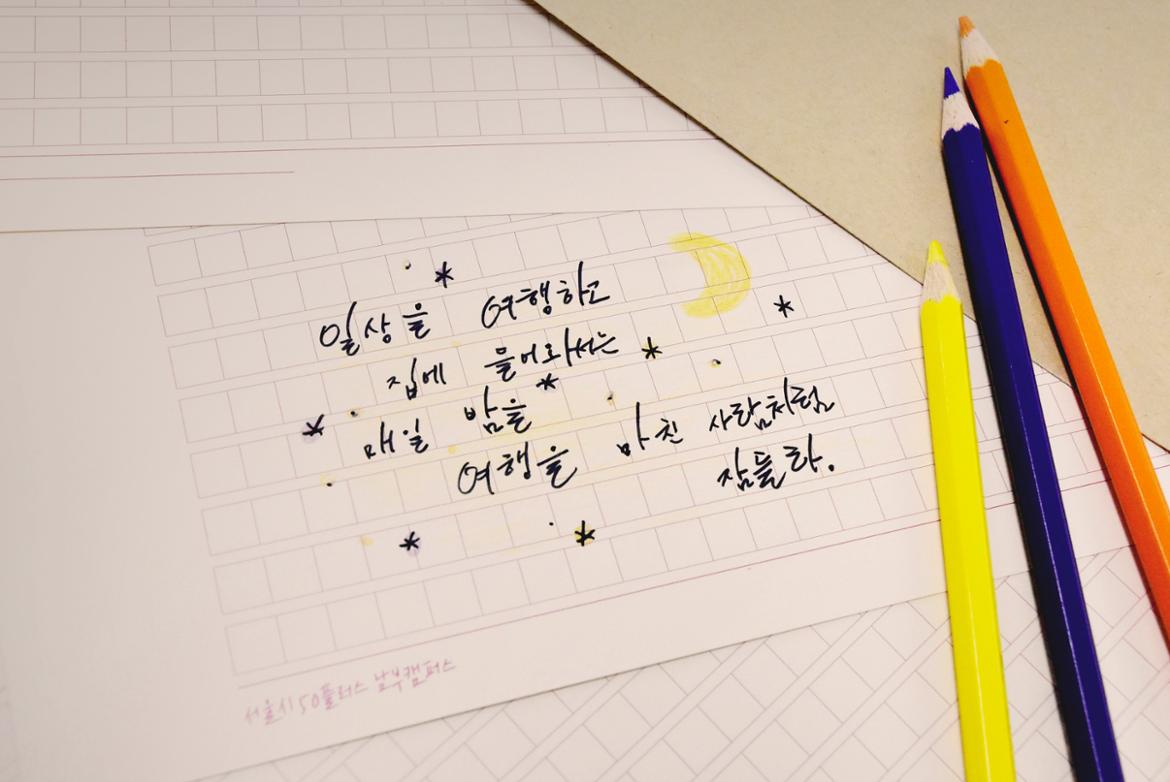 일상을 여행하고
집에 들어와서는
매일 밤을
여행을 마친 사람처럼
잠들라.
서울시50플러스 남부캠퍼스